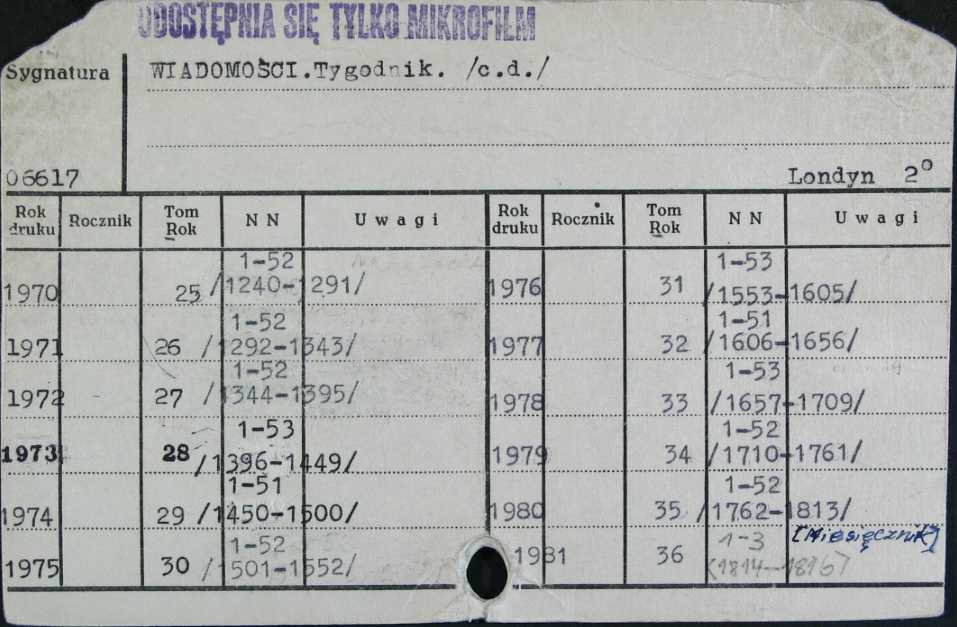 UDOSTĘPNIA SIĘ TYLKO MIKROFILM
Sygnatura
WIADOMOŚCI.Tygodnik. /c.d./
06617
Londyn 2°
Rok druku Rocznik Tom Rok NN Uwagi Rok druku Rocznik Tom Rok NN Uwagi
1970 25 1-52 /1240-1291/ 1976 31 1-53 /1553-1605/
1971 26 1-52 /1292-1343/ 1977 32 1-51 /1606-1656/
1972 27 1-52 /1344-1395/ 1978 33 1-53 /1657-1709/
1973 28 1-53 /1396-1449/ 1979 34 1-52 /1710-1761/
1974 29 1-51 /1450-1500/ 1980 35 1-52 /1762-1813/
1975 30 1-52 /1501-1552/ 1981 36 1-3 (1814-1816) [Miesięcznik]